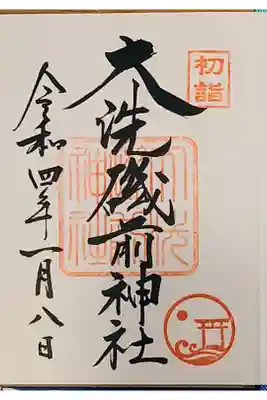 初詣
大洗磯前神社
令和四年一月八日